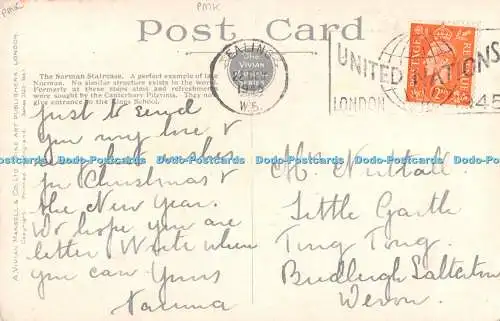 PMK
PMK
Post Card
The Norman Staircase. A perfect example of late
Norman. No similar structure exists in the world.
Formerly at these stairs alms and refreshment
were sought by the Canterbury Pilgrims. They now
give entrance to the Kings School.
THE
VIVIAN
MANSELL
SERIES
EALING
W.5.
UNITED NATIONS
LONDON
POSTAGE
REVENUE
A. VIVIAN MANSELL & CO., FINE ART PUBLISHERS, LONDON
Just to send
you my love &
best wishes
for Christmas &
the New Year.
We hope you are
better Write when
you can Yours
Mrs Nuttall.
Little Garth
Ting Tong.
Budleigh Salterton
Devon.
Dodo-Postcards Dodo-Postcards Dodo-Postcards Dodo-Postcards Dodo-Postcards